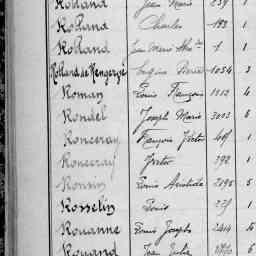 Rolland Jean Marie 239 1
Rolland Charles 193 1
Rolland Jean Marie 1 1
Rolland de Rengervé Eugène Pierre 1054 3
Roman Louis François 1552 4
Rondel Joseph Marie 3023 6
Ronceray François Victor 461 1
Ronceray Victor 392 1
Ronsin Louis Aristide 2295 5
Rosselin Louis 229 1
Rouanne Louis Joseph 2414 5
Rouand Jean Julien 6